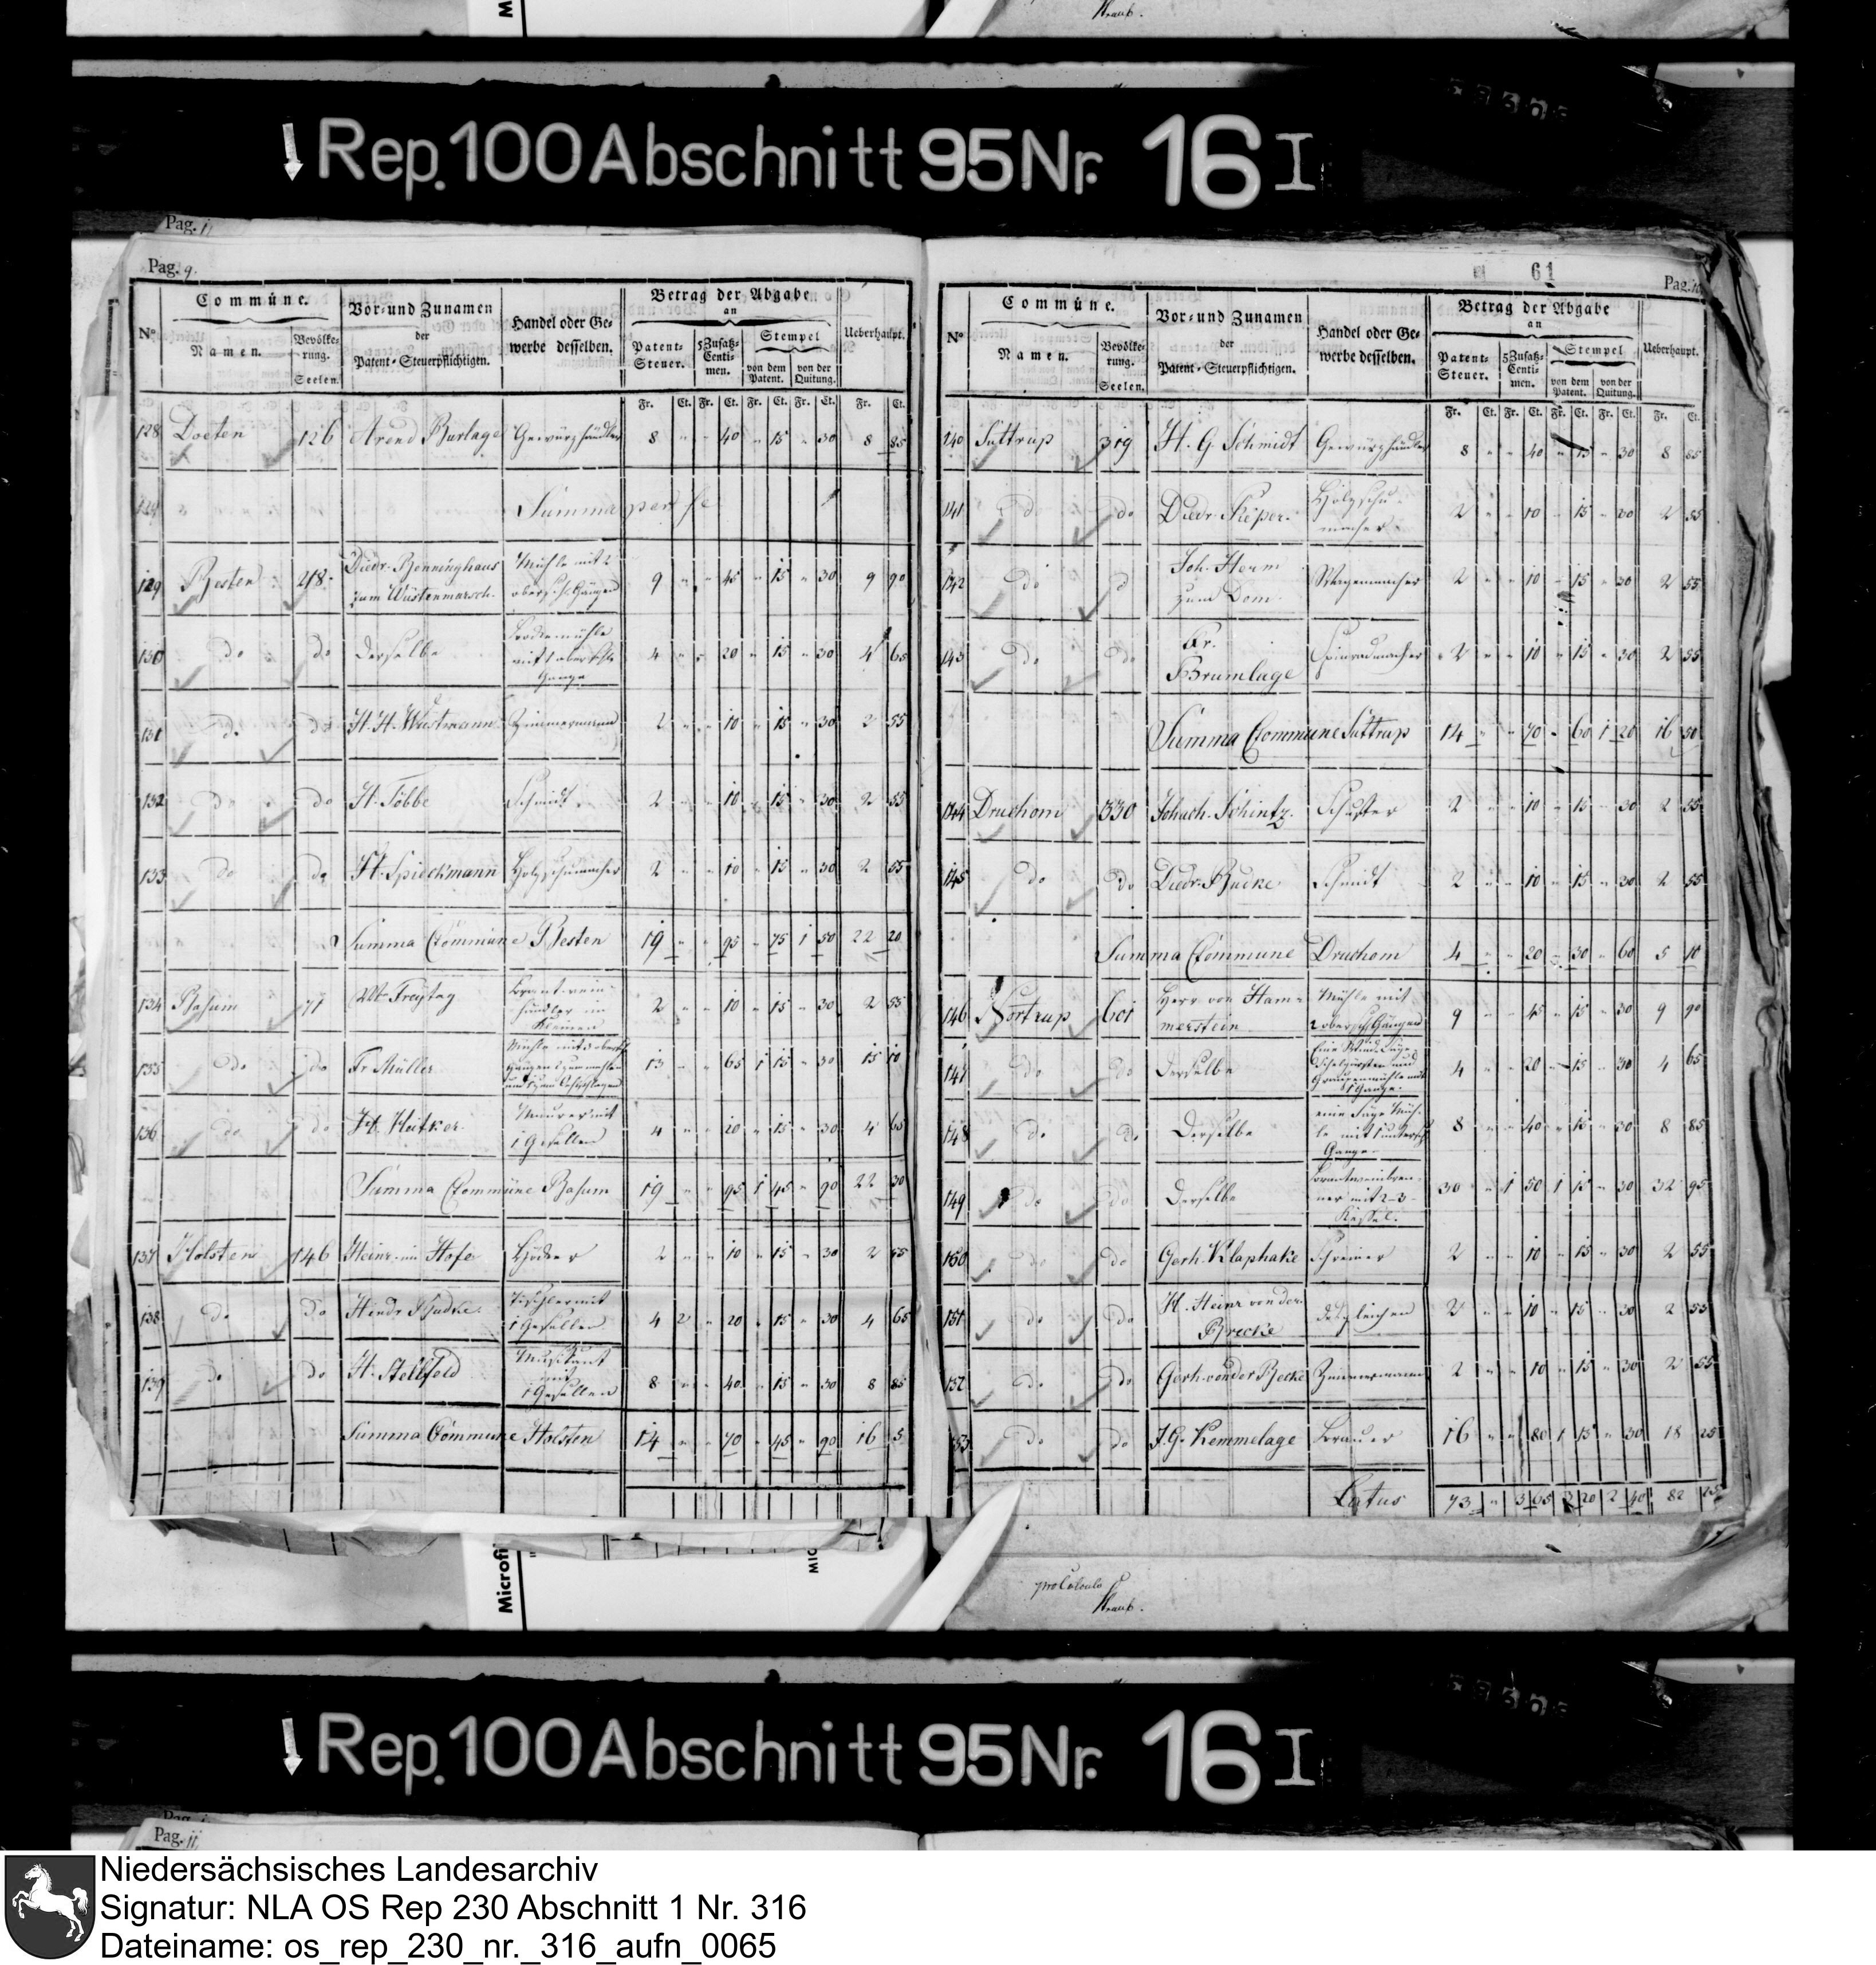 Kraub.
↓ Rep. 100 Abschnitt 95 Nr. 16 I
Pag. 11
Pag. 9.
Commüne. Vor= und Zunamen der Patent=Steuerpflichtigen. Handel oder Gewerbe desselben. Betrag der Abgabe an Ueberhaupt.
No Namen. Bevölkerung. Seelen. Patent=Steuer. 5 Zusatz=Centimen. Stempel von dem Patent. von der Quitung.
Fr. Ct. Fr. Ct. Fr. Ct. Fr. Ct. Fr. Ct.
128 Doeten 126 Arend Burlage Gewürzhändler 8 " " 40 " 15 " 30 8 85
Summa per se
129 Besten 218 Diedr. Benninghaus zum Wüstenmersch. Mühle mit 2 obersch. Gängen 9 " " 45 " 15 " 30 9 90
130 do do derselbe mit 1 obersch. Gange 4 " " 20 " 15 " 30 4 65
131 do do H. H. Wustmann Zimmermann 2 " " 10 " 15 " 30 2 55
132 do do H. Többe Schmidt 2 " " 10 " 15 " 30 2 55
133 do do H. Spieckmann Holzschumacher 2 " " 10 " 15 " 30 2 55
Summa Commüne Besten 19 " " 95 " 75 1 50 22 20
134 Basum 71 Wt Freytag Brantweinhändler im Kleinen 2 " " 10 " 15 " 30 2 55
135 do do Fr Müller Mühle mit 3 obersch. Gängen 13 " " 65 1 15 " 30 15 10
136 do do H. Heitker Maurer mit 1 Gesellen 4 " " 20 " 15 " 30 4 65
Summa Commüne Basum 19 " " 95 1 45 " 90 22 30
137 Holsten 146 Heinr. im Hofe Höcker 2 " " 10 " 15 " 30 2 55
138 do do Tischler mit 1 Gesellen 4 " " 20 " 15 " 30 4 65
139 do do H. Stellfeld Musikant mit 1 Gesellen 8 " " 40 " 15 " 30 8 85
Summa Commune Holsten 14 " " 70 " 45 " 90 16 5
61
Pag. 10
Commüne. Vor= und Zunamen der Patent=Steuerpflichtigen. Handel oder Gewerbe desselben. Betrag der Abgabe an Ueberhaupt.
No Namen. Bevölkerung. Seelen. Patent=Steuer. 5 Zusatz=Centimen. Stempel von dem Patent. von der Quitung.
Fr. Ct. Fr. Ct. Fr. Ct. Fr. Ct. Fr. Ct.
140 Suttrup 319 H. G. Schmidt Gewürzhändler 8 " " 40 " 15 " 30 8 85
141 do do Diedr. Holzschumacher 2 " " 10 " 15 " 30 2 55
142 do d Joh. Herm zum Dom. 2 " " 10 " 15 " 30 2 55
143 do do Fr. Brumlage Spinradmacher 2 " " 10 " 15 " 30 2 55
Summa Commune Suttrup 14 " " 70 " 60 1 20 16 50
144 Druchom 330 Schach. Schintz. Schuster 2 " " 10 " 15 " 30 2 55
145 do do Diedr. Bucke Schmidt 2 " " 10 " 15 " 30 2 55
Summa Commune Druchom 4 " " 20 " 30 " 60 5 10
146 Nortrup 601 Herr von Hammerstein Mühle mit 2 obersch. Gängen 9 " " 45 " 15 " 30 9 90
147 do do Derselbe Graupenmühle mit 1 Gange. 4 " " 20 " 15 " 30 4 65
148 do do Derselbe eine Säge Mühle mit 1 untersch. Gange. 8 " " 40 " 15 " 30 8 85
149 do do Derselbe Brantweinbrenner mit 2-3 Kessel. 30 " 1 50 1 15 " 30 32 95
150 do do Gerh. Klaphake Schreiner 2 " " 10 " 15 " 30 2 55
151 do do H. Heinr von der Brecke desgleichen 2 " " 10 " 15 " 30 2 55
152 do do Gerh. von der Becke Zimmermann 2 " " 10 " 15 " 30 2 55
153 do do J. G. Kemmelage Brauer 16 " " 80 1 15 " 30 18 25
Latus 73 " 3 65 3 20 2 40 82 25
Microfi
MIC
pro Calculo
Kraub.
↓ Rep. 100 Abschnitt 95 Nr. 16 I
Pag. 11
Niedersächsisches Landesarchiv
Signatur: NLA OS Rep 230 Abschnitt 1 Nr. 316
Dateiname: os_rep_230_nr._316_aufn_0065